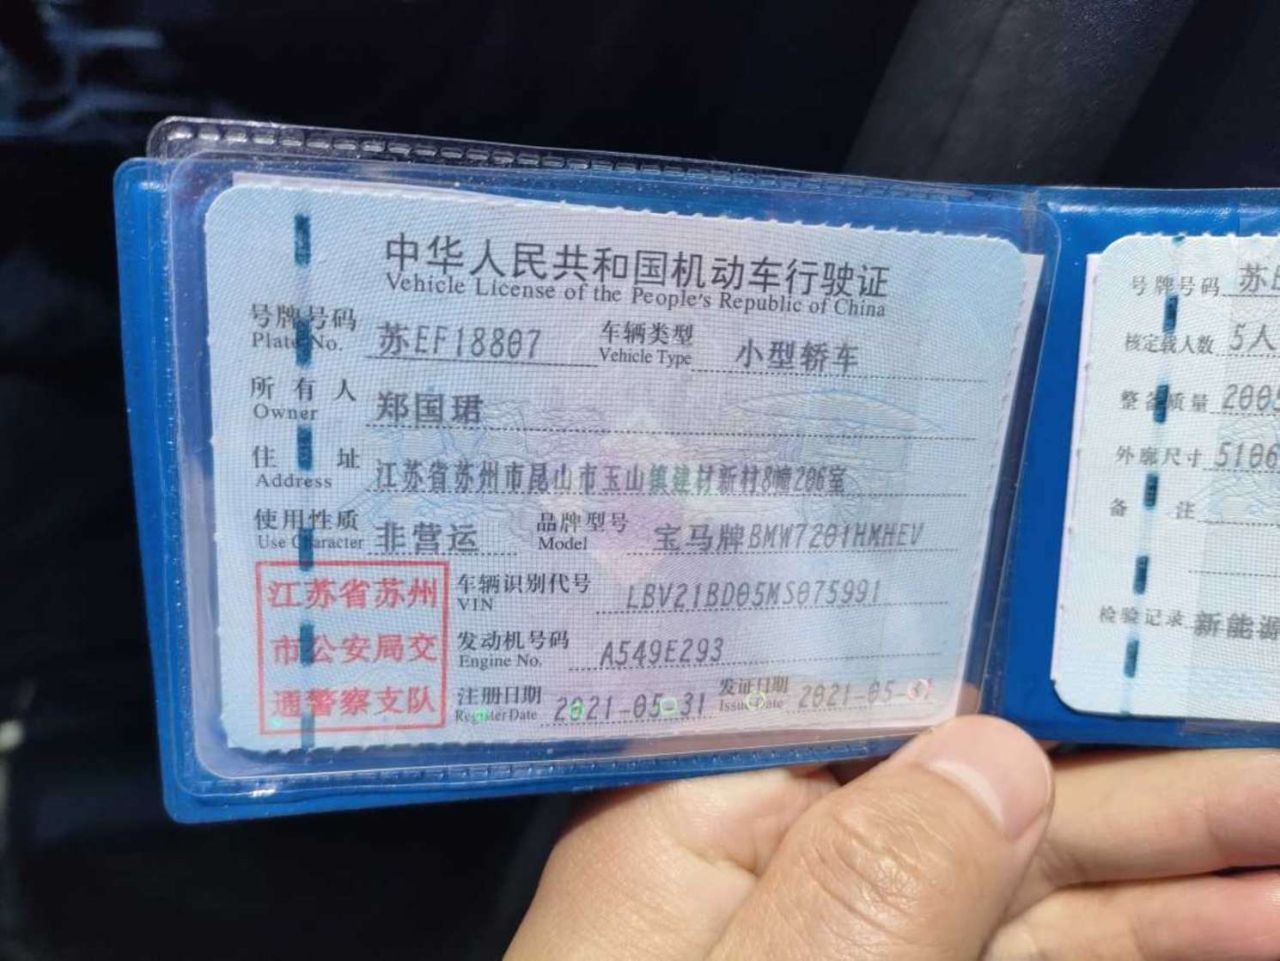 中华人民共和国机动车行驶证
Vehicle License of the People's Republic of China
号牌号码 苏EF18807 车辆类型 小型轿车
Plate No. Vehicle Type
所有人 郑国珺
Owner
住址 江苏省苏州市昆山市玉山镇建材新村8幢206室
Address
使用性质 非营运 品牌型号 宝马牌BMW7201HMHEV
Use Character Model
江苏省苏州
市公安局交
通警察支队
车辆识别代号 LBV21BD05MS075991
VIN
发动机号码 A549E293
Engine No.
注册日期 2021-05-31 发证日期 2021-05-31
Register Date Issue Date
号牌号码 苏
核定载人数 5人
整备质量 200
外廓尺寸 5106
备注
检验记录 新能源